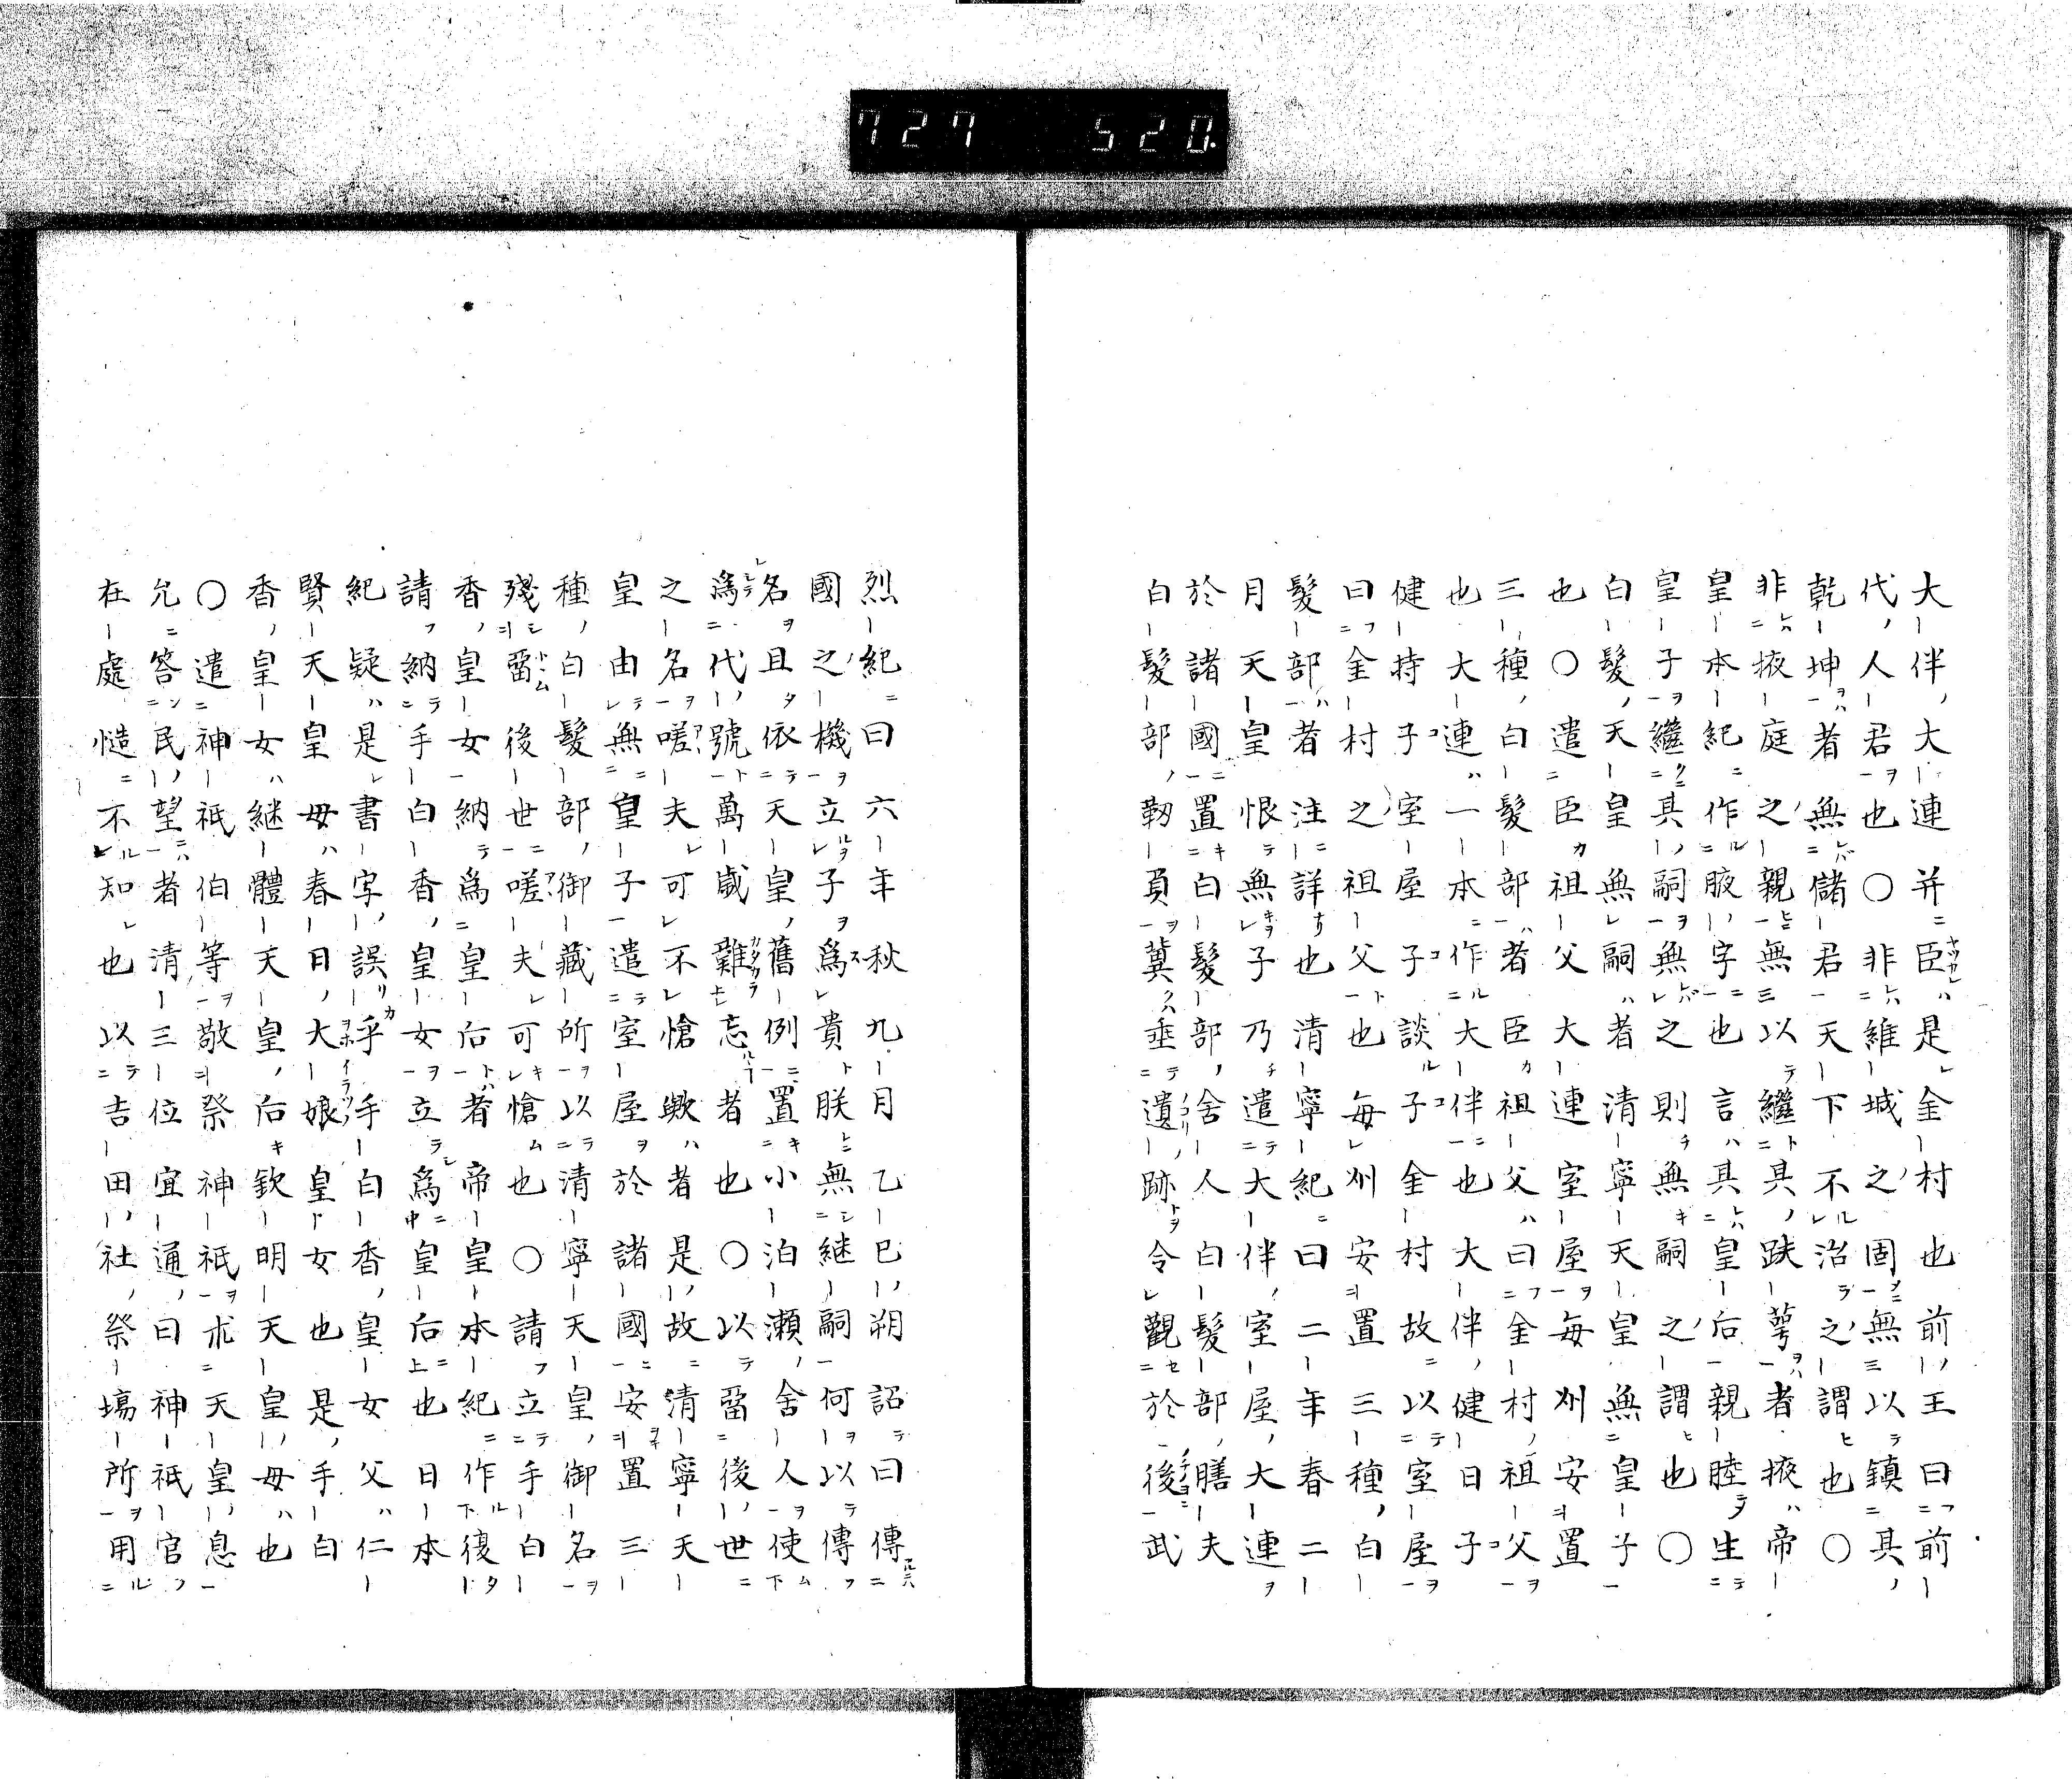 727 520
大伴大連并臣是金村也前王曰前
代人君也○非維城之固無以鎮其
乾坤者無儲君天下不治之謂也○
非掖庭之親無以繼其跌萼者掖帝
皇本紀作腋字也言其皇后親睦生
皇子繼其嗣無之則無嗣之謂也○
白髮天皇無嗣者清寧天皇無皇子
也○遣臣祖父大連室屋每州安置
三種白髮部者臣祖父曰金村祖父
也大連一本作大伴也大伴健日子
健持子室屋子談子金村故以室屋
曰金村之祖父也每州安置三種白
髮部者注詳也清寧紀曰二年春二
月天皇恨無子乃遣大伴室屋大連
於諸國置白髮部舍人白髮部膳夫
白髮部靱負冀垂遺跡令觀於後武
烈紀曰六年秋九月乙巳朔詔曰傳
國之機立子爲貴朕無継嗣何以傳
名且依天皇舊例置小泊瀬舍人使
爲代號萬歲難忘者也○以畱後世
之名嗟夫可不愴歟者是故清寧天
皇由無皇子遣室屋於諸國安置三
種白髮部御藏所以清寧天皇御名
殘畱後世嗟夫可愴也○請立手白
香皇女納爲皇后者帝皇本紀作復
請納手白香皇女立爲皇后也日本
紀疑是書字誤乎手白香皇女父仁
賢天皇母春日大娘皇女也是手白
香皇女継體天皇后欽明天皇母也
○遣神祇伯等敬祭神祇求天皇息
允答民望者清三位宜通曰神祇官
在處慥不知也以吉田社祭場所用